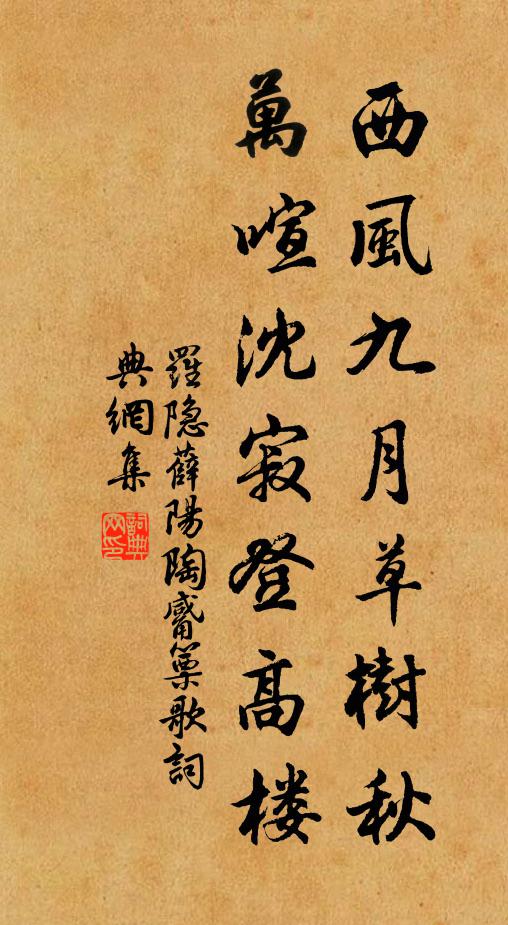 西風九月草樹秋
萬喧沈寂登高楼
羅隐薛陽陶觱篥歌詞
典網集
詞典网印